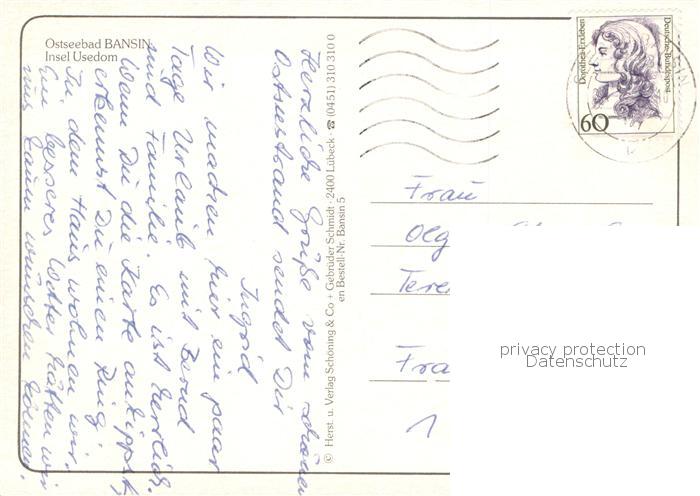 Ostseebad BANSIN
Insel Usedom
Herzliche Grüße vom schönen
Ostseestrand sendet Dir
Ingrid
Wir machen hier ein paar
Tage Urlaub mit Bernd
und Familie. Es ist herrlich.
Wenn Du die Karte antippst
erkennst Du einen Ring
In dem Haus wohnen wir.
Ein besseres Wetter hätten wir
uns kaum wünschen können.
© Herst. u. Verlag Schöning & Co + Gebrüder Schmidt · 2400 Lübeck · ☎ (0451) 310 310 0
en Bestell-Nr. Bansin 5
Dorothea Erxleben
Deutsche Bundespost
60
Frau
Olg
Tere
Fra
1
privacy protection
Datenschutz